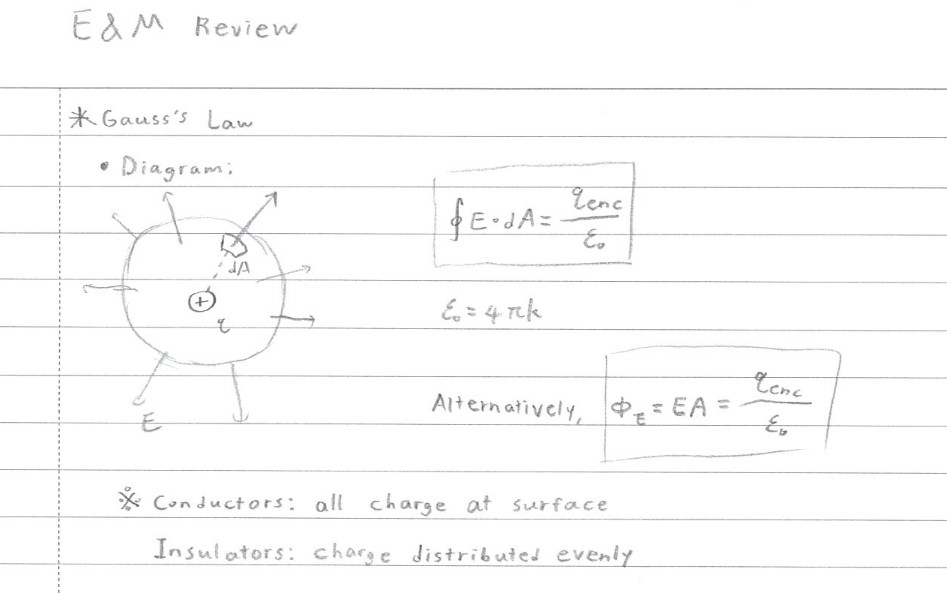 E & M Review
* Gauss's Law
• Diagram:
∮ E · dA = qenc / ε₀
dA
+
q
ε₀ = 4πk
E
Alternatively, Φ_E = EA = qenc / ε₀
※ Conductors: all charge at surface
Insulators: charge distributed evenly